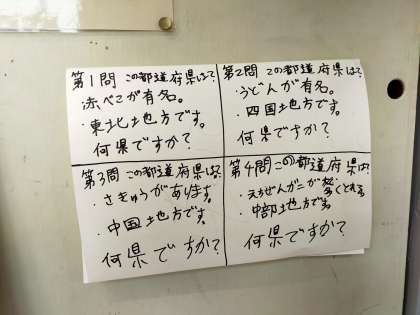 第1問 この都道府県は?
赤べこが有名。
・東北地方です。
何県ですか?
第2問 この都道府県は?
・うどんが有名。
・四国地方です。
何県ですか?
第3問 この都道府県は?
・さきゅうがあります。
・中国地方です。
何県ですか?
第4問 この都道府県は?
・えちぜんガニが多くとれる
・中部地方です。
何県ですか?